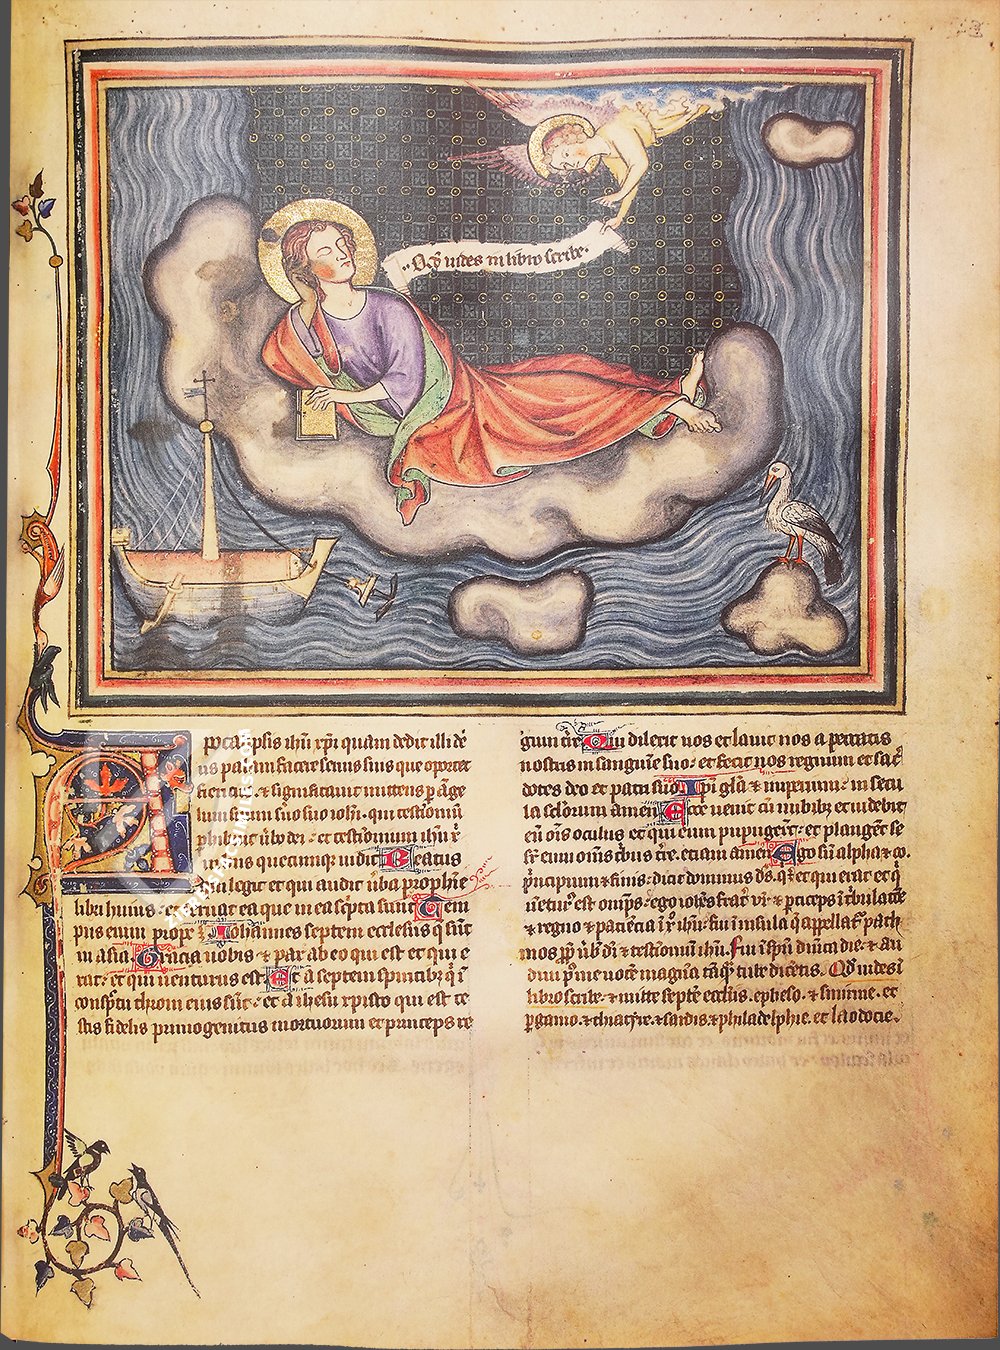 Qd uides in libro scribe
Apocalipsis ihu xpi quam dedit illi de
us palam facere seruis suis que oportet
fieri cito et significauit mittens p ange
lum suum seruo suo iohi qui testimoniu
phibuit ubo dei et testimonium ihu xi
in hiis quecumque uidit Beatus
qui legit et qui audit uba prophie
libri huius et seruat ea que in ea scpta sunt Tem
pus enim prope est Johannes septem ecclesiis q sut
in asia Gracia uobis et pax ab eo qui est et qui e
rat et qui uenturus est Et a septem spiritibz qi i
conspctu throni eius sut et a ihesu xpisto qui est te
stis fidelis primogenitus mortuorum et princeps re
gum tre Qui dilexit nos et lauit nos a peccatis
nostris in sanguine suo et fecit nos regnum et sac
dotes deo et patri suo Ipi gla et imperium in secu
la seculorum amen Ecce uenit cu nubibz et uidebit
eu ois oculus et qui eum pupugert et plangent se
sr eum omis tbus tre etiam amen Ego su alpha et o
principium et finis dicit dominus ds qi e et qui erat et q
uetur est omps ego iohes frat ur et pticeps i tbulacoe
et regno et paciecia i xr ihu fui i insula q appellat path
mos pp ubu di et testimoniu ihu fui i spu diuica die et au
diui p me uoce magna taq tube dicetis Qd uides i
libro scribe et mitte septe ecclis epheso et smirne et
pgamo et thiatire et sardis et philadelphie et laodocie